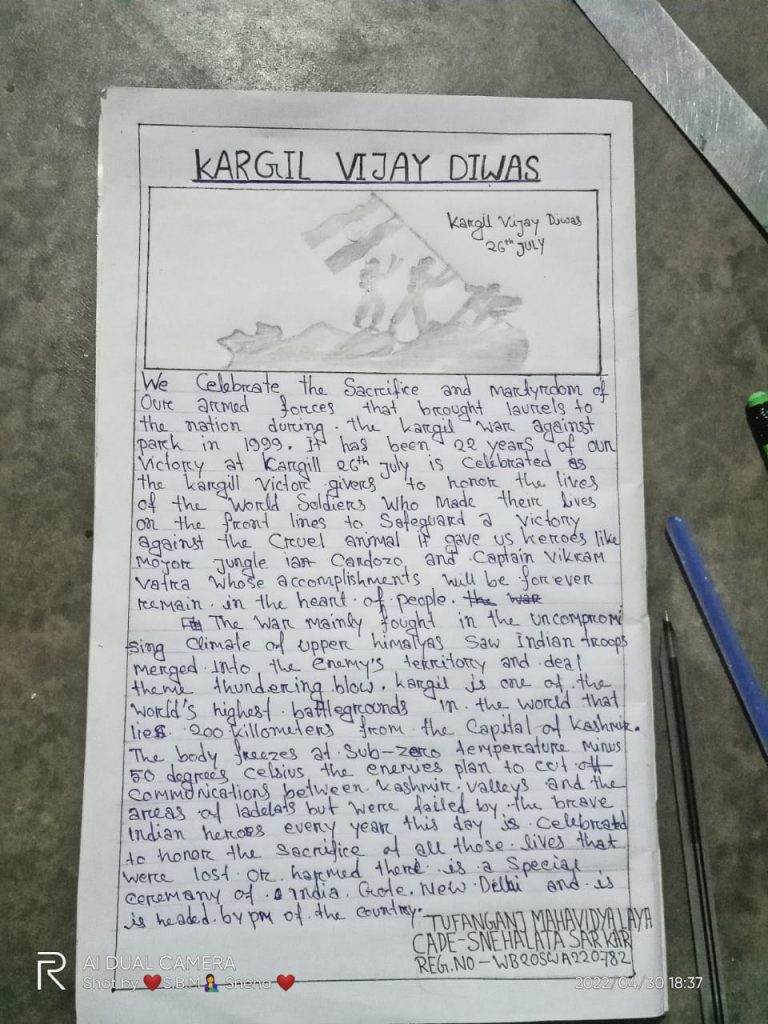 KARGIL VIJAY DIWAS
Kargil Vijay Diwas
26th JULY
We Celebrate the Sacrifice and martyrdom of
Our armed forces that brought laurels to
the nation during. the kargil war against
park in 1999. It has been 22 years of our
Victory at Kargill 26th july is celebrated as
the kargill victor givers to honor the lives
of the World Soldiers Who made their lives
on the front lines to Safeguard a victory
against the Cruel animal it gave us heroes like
mojor jungle ian Cardozo, and Captain Vikram
Vatra whose accomplishments will be forever
remain. in the heart of people. the war
The war mainly fought in the uncompromi
sing Climate of upper himalyas Saw Indian troops
merged into the enemy's territory and deal
theme thundering blow. kargil is one of the
world's highest battlegrounds in the world that
lies 200 kilometers from the Capital of Kashmir.
The body freezes at Sub-zero temperature minus
50 degrees Celsius the enemies plan to cut off
Communications between kashmir valleys and the
areas of ladelats but were failed by the brave
Indian heroes every year this day is Celebrated
to honor the Sacrifice of all those lives that
were lost or harmed there is a Special
ceremany of India. Gate. New Delhi and is
is headed by pm of the country.
TUFANGANJ MAHAVIDYALAYA
CADE-SNEHALATA SARKAR
REG.NO-WB20SWA220782
R AI DUAL CAMERA
Shot by ❤️S.B.M🤦‍♀️ Sneha ❤️
2022/04/30 18:37